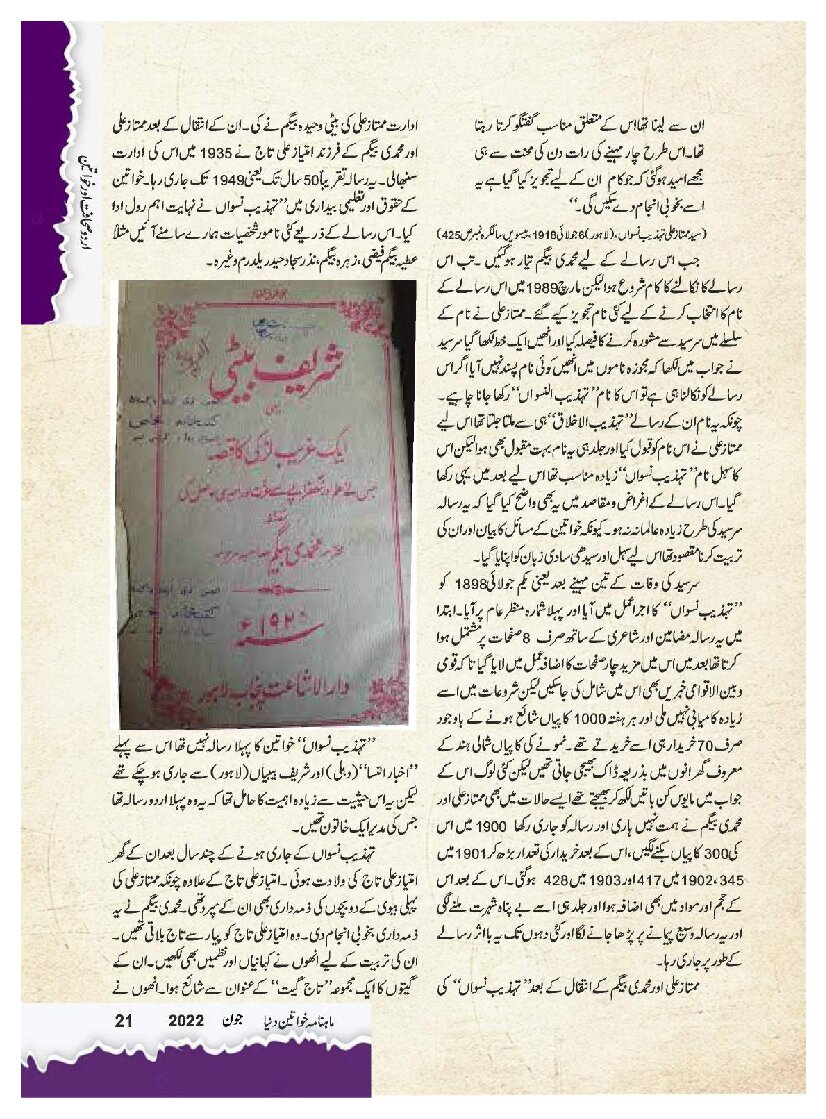 اردو صحافت اور خواتین
ان سے لینا تھا اس کے متعلق مناسب گفتگو کرتا رہتا
تھا۔ اس طرح چار مہینے کی رات دن کی محنت سے ہی
مجھے امید ہوگئی کہ جو کام ان کے لیے تجویز کیا گیا ہے یہ
اسے بخوبی انجام دے سکیں گی۔‘‘
(سید ممتاز علی تہذیب نسواں، (لاہور) 6 جولائی 1918، بیسویں سالگرہ نمبر ص 425)
جب اس رسالے کے لیے محمدی بیگم تیار ہوگئیں۔ تب اس
رسالے کا نکالنے کا کام شروع ہوا لیکن مارچ 1989 میں اس رسالے کے
نام کا انتخاب کرنے کے لیے کئی نام تجویز کیے گئے۔ ممتاز علی نے نام کے
سلسلے میں سرسید سے مشورہ کرنے کا فیصلہ کیا اور انھیں ایک خط لکھا گیا سرسید
نے جواب میں لکھا کہ مجوزہ ناموں میں انھیں کوئی نام پسند نہیں آیا اگر اس
رسالے کو نکالنا ہی ہے تو اس کا نام ’’تہذیب النسواں‘‘ رکھا جانا چاہیے۔
چونکہ یہ نام ان کے رسالے ’’تہذیب الاخلاق‘‘ ہی سے ملتا جلتا تھا اس لیے
ممتاز علی نے اس نام کو قبول کیا اور جلد ہی یہ نام بہت مقبول بھی ہوا لیکن اس
کا سہل نام ’’تہذیب نسواں‘‘ زیادہ مناسب تھا اس لیے بعد میں یہی رکھا
گیا۔ اس رسالے کے اغراض و مقاصد میں یہ بھی واضح کیا گیا کہ یہ رسالہ
سرسید کی طرح زیادہ عالمانہ نہ ہو۔ کیونکہ خواتین کے مسائل کا بیان اور ان کی
تربیت کرنا مقصود تھا اس لیے سہل اور سیدھی سادی زبان کو اپنایا گیا۔
سرسید کی وفات کے تین مہینے بعد یعنی یکم جولائی 1898 کو
’’تہذیب نسواں‘‘ کا اجرا عمل میں آیا اور پہلا شمارہ منظر عام پر آیا۔ ابتدا
میں یہ رسالہ مضامین اور شاعری کے ساتھ صرف 8 صفحات پر مشتمل ہوا
کرتا تھا بعد میں اس میں مزید چار صفحات کا اضافہ عمل میں لایا گیا تاکہ قومی
و بین الاقوامی خبریں بھی اس میں شامل کی جاسکیں لیکن شروعات میں اسے
زیادہ کامیابی نہیں ملی اور ہر ہفتہ 1000 کاپیاں شائع ہونے کے باوجود
صرف 70 خریدار ہی اسے خریدتے تھے۔ نمونے کی کاپیاں شمالی ہند کے
معروف گھرانوں میں بذریعہ ڈاک بھیجی جاتی تھیں لیکن کئی لوگ اس کے
جواب میں مایوس کن باتیں لکھ کر بھیجتے تھے ایسے حالات میں بھی ممتاز علی اور
محمدی بیگم نے ہمت نہیں ہاری اور رسالہ کو جاری رکھا 1900 میں اس
کی 300 کاپیاں بکنے لگیں، اس کے بعد خریدار کی تعداد بڑھ کر 1901 میں
345، 1902 میں 417 اور 1903 میں 428 ہوگئی۔ اس کے بعد اس
کے حجم اور مواد میں بھی اضافہ ہوا اور جلد ہی اسے بے پناہ شہرت ملنے لگی
اور یہ رسالہ وسیع پیمانے پر پڑھا جانے لگا اور کئی دہوں تک یہ با اثر رسالے
کے طور پر جاری رہا۔
ممتاز علی اور محمدی بیگم کے انتقال کے بعد ’’تہذیب نسواں‘‘ کی
ادارت ممتاز علی کی بیٹی وحیدہ بیگم نے کی۔ ان کے انتقال کے بعد ممتاز علی
اور محمدی بیگم کے فرزند امتیاز علی تاج نے 1935 میں اس کی ادارت
سنبھالی۔ یہ رسالہ تقریباً 50 سال تک یعنی 1949 تک جاری رہا۔ خواتین
کے حقوق اور تعلیمی بیداری میں ’’تہذیب نسواں نے نہایت اہم رول ادا
کیا۔ اس رسالے کے ذریعے کئی نامور شخصیات ہمارے سامنے آئیں مثلاً
عطیہ بیگم فیضی، زہرہ بیگم، نذر سجاد حیدر یلدرم وغیرہ۔
شریف بیٹی
یعنی
ایک غریب لڑکی کا قصہ
محمدی بیگم
سنہ ۱۹۲۰ء
دارالاشاعت پنجاب لاہور
’’تہذیب نسواں‘‘ خواتین کا پہلا رسالہ نہیں تھا اس سے پہلے
’’اخبار النسا‘‘ (دہلی) اور شریف بیبیاں (لاہور) سے جاری ہوچکے تھے
لیکن یہ اس حیثیت سے زیادہ اہمیت کا حامل تھا کہ یہ وہ پہلا اردو رسالہ تھا
جس کی مدیر ایک خاتون تھیں۔
تہذیب نسواں کے جاری ہونے کے چند سال بعد ان کے گھر
امتیاز علی تاج کی ولادت ہوئی۔ امتیاز علی تاج کے علاوہ چونکہ ممتاز علی کی
پہلی بیوی کے دو بچوں کی ذمہ داری بھی ان کے سپرد تھی۔ محمدی بیگم نے یہ
ذمہ داری بخوبی انجام دی۔ وہ امتیاز علی تاج کو پیار سے تاج بلاتی تھیں۔
ان کی تربیت کے لیے انھوں نے کہانیاں اور نظمیں بھی لکھیں۔ ان کے
گیتوں کا ایک مجموعہ ’’تاج گیت‘‘ کے عنوان سے شائع ہوا۔ انھوں نے
ماہنامہ خواتین دنیا جون 2022 21